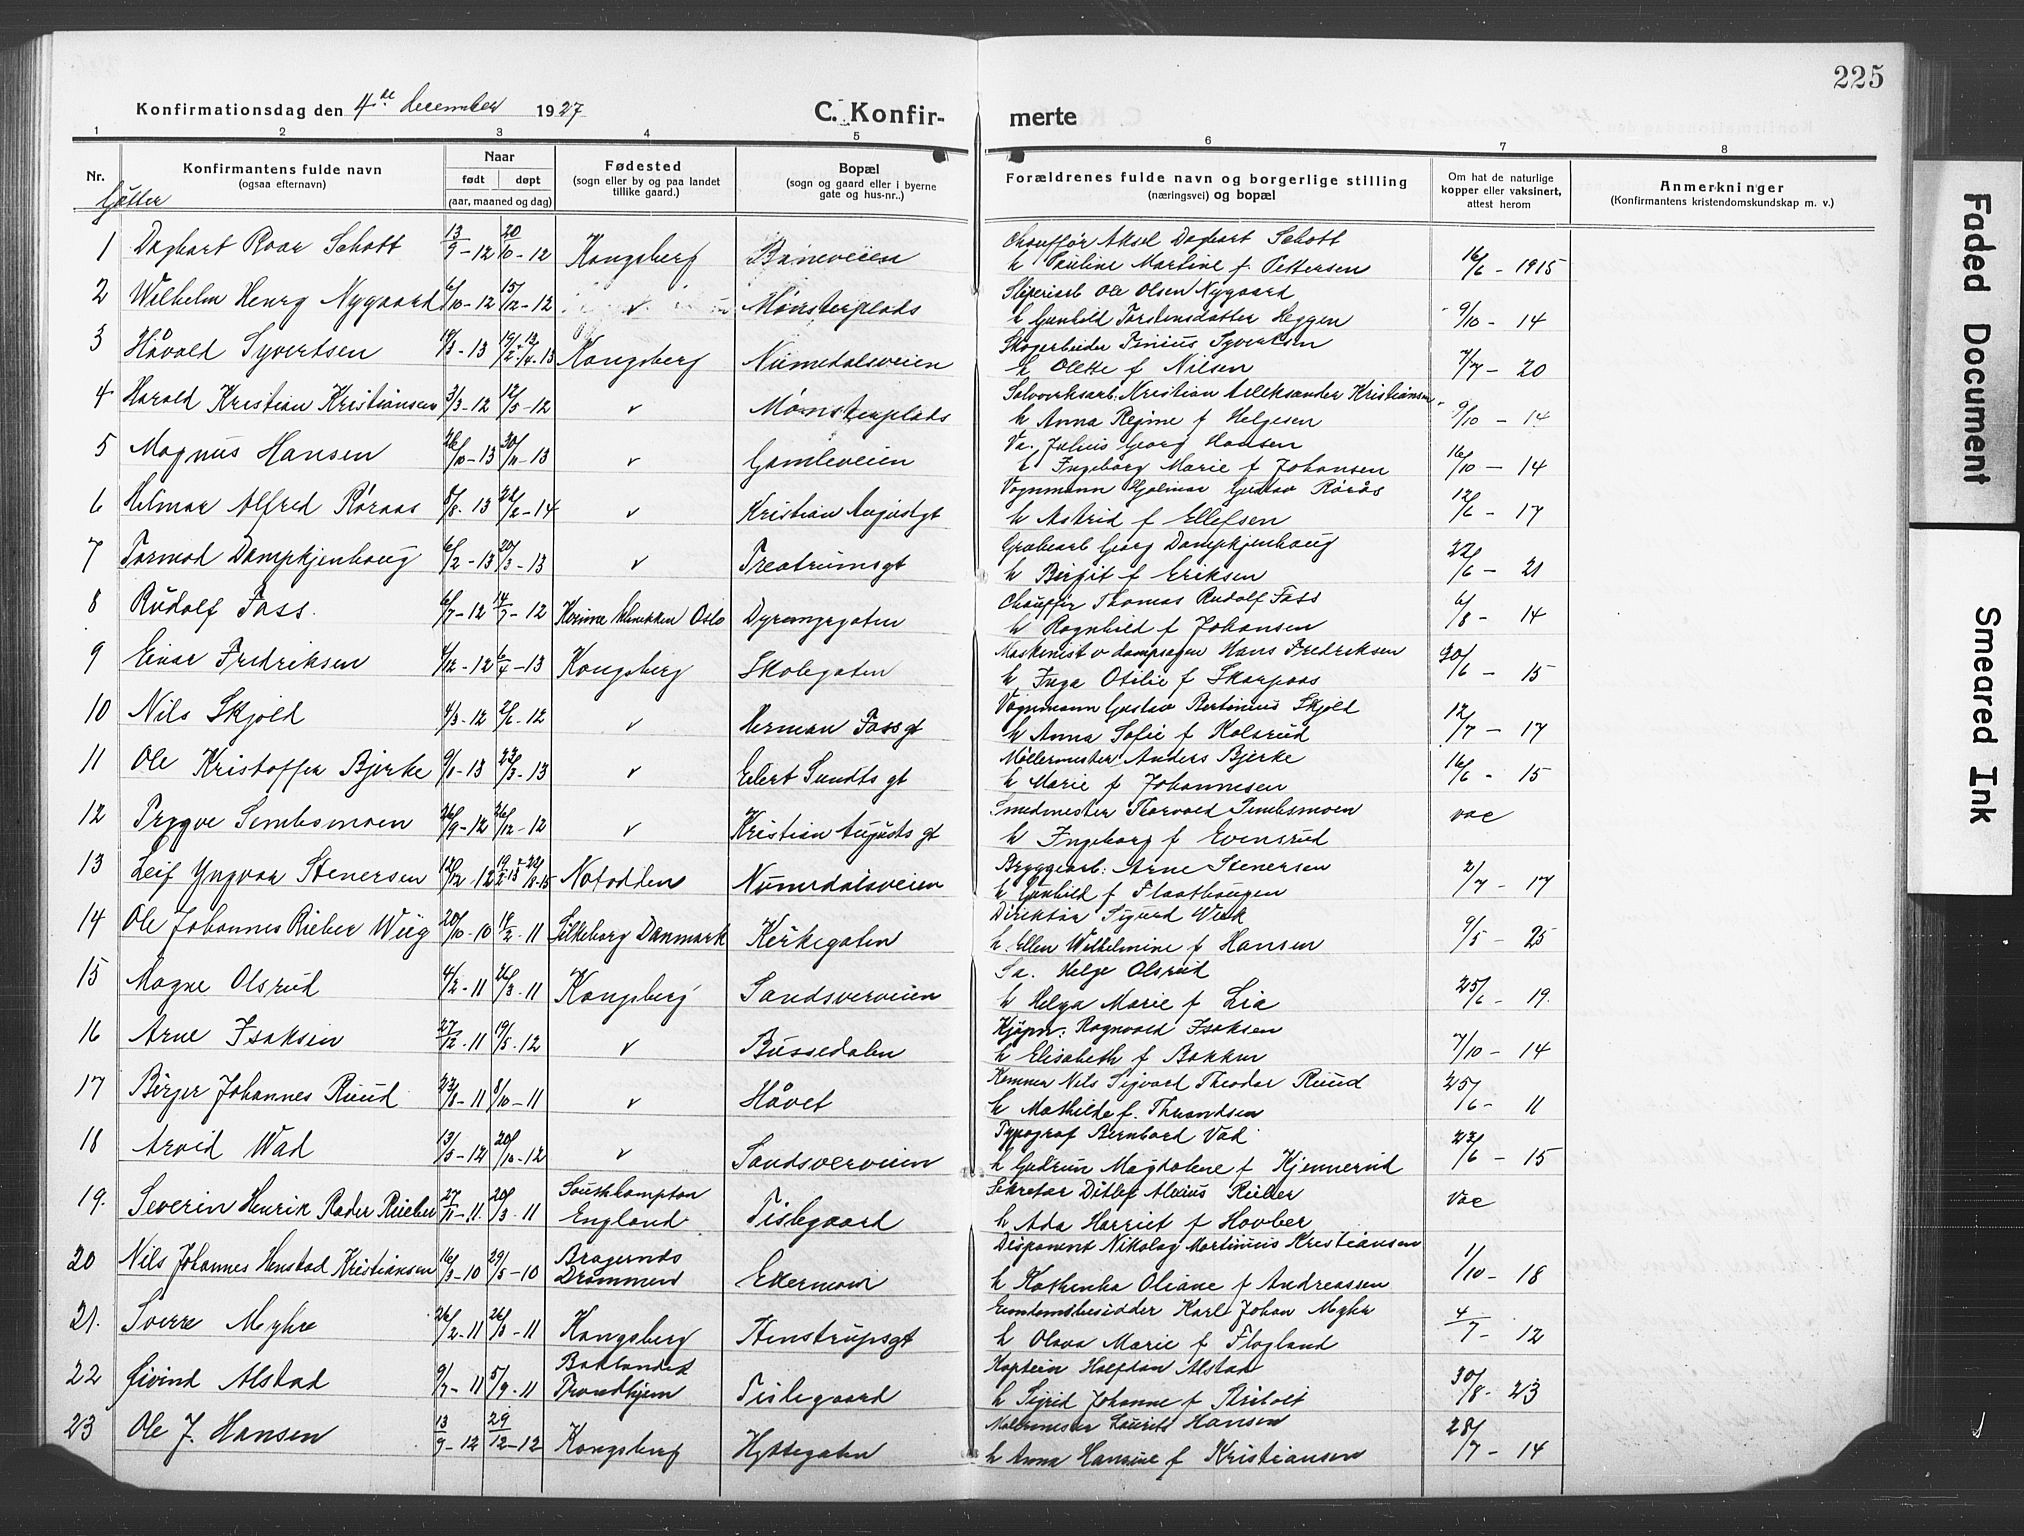 225
Konfirmationsdag den 4de december 1927
C. Konfirmerte
1 2 3 4 5 6 7 8
Nr.
Konfirmantens fulde navn
(ogsaa efternavn)
Naar
født døpt
(aar, maaned og dag)
Fødested
(sogn eller by og paa landet
tillike gaard.)
Bopæl
(sogn og gaard eller i byerne
gate og hus-nr..)
Forældrenes fulde navn og borgerlige stilling
(næringsvei) og bopæl
Om hat de naturlige
kopper eller vaksinert,
attest herom
Anmerkninger
(Konfirmantens kristendomskundskap m. v.)
Gutter
1 Dagbart Roar Schott 13/9-12 20/10-12 Kongsberg Baneveien Chauffør Aksel Dagbart Schott
h Pauline Martine f. Pettersen 16/6-1915
2 Wilhelm Henry Nygaard 6/10-12 15/12-12 v Mønsterplads Sliperiarb Ole Olsen Nygaard
h Gunhild Torstensdatter Heggen 9/10-14
3 Håvald Syvertsen 19/3-13 Kongsberg Numedalsveien Skogarbeider Syvertsen
h Olette f Nilsen 7/7-20
4 Harald Kristian Kristiansen 3/3-12 12/5-12 v Mønsterplads Sølvverksarb: Kristian Alleksander Kristiansen
h Anna Regine f Helgesen 9/10-14
5 Magnus Hansen 26/10-13 30/11-13 v Gamleveien Va. Julius Georg Hansen
h Ingeborg Marie f Johansen 16/10-14
6 Helmar Alfred Røraas 5/8-13 22/2-14 v Kristian Augustgt Vognmann Hjalmar Gustav Rørås
h Astrid f Ellefsen 12/6-17
7 Tormod Dampkjenhaug 6/2-13 20/3-13 v Treatrumsgt Grubearb Georg Dampkjenhaug
h Birgit f Eriksen 22/6-21
8 Rudolf Fass. 6/7-12 14/7-12 Oslo Dyrmyrgaten Chauffør Thomas Rudolf Fass
h Ragnhild f Johansen 6/8-14
9 Einar Fredriksen 4/12-12 6/4-13 Kongsberg Skolegaten Maskinist v dampsagen Hans Fredriksen
h Inga Otilie f Skarpaas 30/6-15
10 Nils Skjold 4/3-12 2/6-12 v Herman Fossgt Vognmann Gustav Bertinius Skjold
h Anna Sofie f Kolsrud 12/7-17
11 Ole Kristoffer Bjerke 9/1-13 23/3-13 v Eilert Sundts gt Møllermester Anders Bjerke
h Marie f Johannesen 16/6-15
12 Trygve Sembsmoen 26/9-12 26/12-12 v Kristian Augusts gt Smedmester Thorvald Sembsmoen
h Ingeborg f Evensrud vac
13 Leif Yngvar Stenersen 12/12-12 Notodden Numedalsveien Bryggearb: Arne Stenersen
h Gunhild f Plaathaugen 2/7-17
14 Ole Johannes Rieber Wiig 20/10-10 19/2-11 Silkeborg Danmark Kirkegaten Direktør Sigurd Wiik
h Ellen Wilhelmine f Hansen 9/5-25
15 Magne Olsrud 4/2-11 26/3-11 Kongsberg Sandsverveien Sa. Helge Olsrud
h Helga Marie f Lia 25/6-19.
16 Arne Isaksen 27/12-11 19/5-12 v Bussedalen Kjøpm: Ragnvald Isaksen
h Elisabeth f Bakken 7/10-14
17 Birger Johannes Ruud 23/8-11 8/10-11 v Håvet Kemner Nils Sigvard Theodor Ruud
h Mathilde f. Thrandsen 25/6-11
18 Arvid Wad 13/5-12 20/10-12 v Sandsverveien Typograf Bernhard Vad
h Gudrun Magdalene f Kjennerud 23/6-15
19. Severin Henrik Rader Rieber 27/11-11. 20/3-11 Southhampton England Tislegaard Sekretær Ditlef Alexius Rieber
h Ada Harriet f Hovber vac
20 Nils Johannes Henstad Kristiansen 16/3-10 29/5-10 Bragernes Drammen Ekermoen Disponent Nikolay Martinius Kristiansen
h Kathinka Oliane f Andreassen 1/10-18
21. Sverre Myhre 26/2-11 26/3-11 Kongsberg Stenstrupsgt Eiendomsbesidder Karl Johan Myhr
h Olava Marie f Flogland 4/7-12
22 Øivind Alstad 9/7-11 5/9-11 Baklandet Trondhjem Tislegaard Kaptein Halfdan Alstad
h Sigrid Johanne f 30/8-23
23 Ole J. Hansen 13/9-12 29/12-12 Kongsberg Hyttegaten Malermester Laurits Hansen
h Anna Hansine f Kristiansen 28/7-14
Faded Document
Smeared Ink